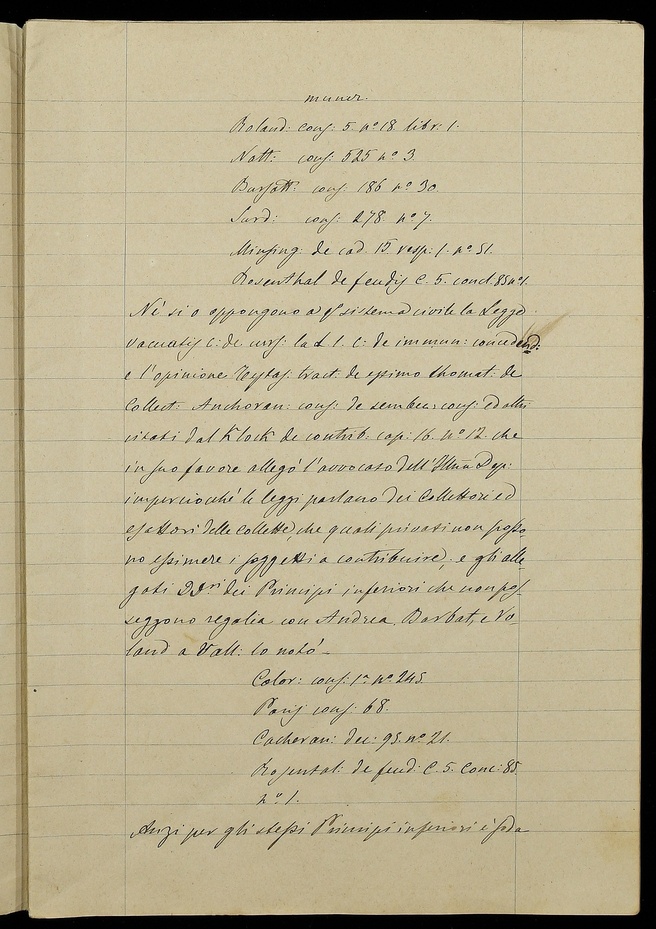 muner.
Roland: cons: 5. nº 18. libr: 1.
Natt: cons: 525 nº 3.
Bursatt: cons: 186 nº 30.
Surd: cons: 278. nº 7.
Minsing: de cad. 15. resp: 1. nº 51.
Rosenthal de feudis C. 5. concl. 85 nº 1.
Né si oppongono a sistema civile la Legge
vacuatis C: de curs: la L 1. C: de immun: conceded:
e l'opinione tract: de thomat: de
Collect: Anchoran: cons: de cons: ed altri
citati dal Klock de contrib: cap: 16. nº 12. che
in suo favore allegò l'avvocato dell'Illma Dep:
imperciocché le leggi parlano dei Collettori ed
esattori delle collette, che quali privati non posso
no esimere i soggetti a contribuire; e gli alle
gati DDri dei Principi inferiori che non pos
seggono regalia con Andrea Barbat, e Ro
land a Vall: lo notó –
Color: cons: 1º nº 245.
Paris cons: 68.
Cacheran: dec: 95. nº 21.
Rosental: de feud: C. 5. Conc: 85.
nº 1.
Anzi per gli stessi Principi inferiori è soda